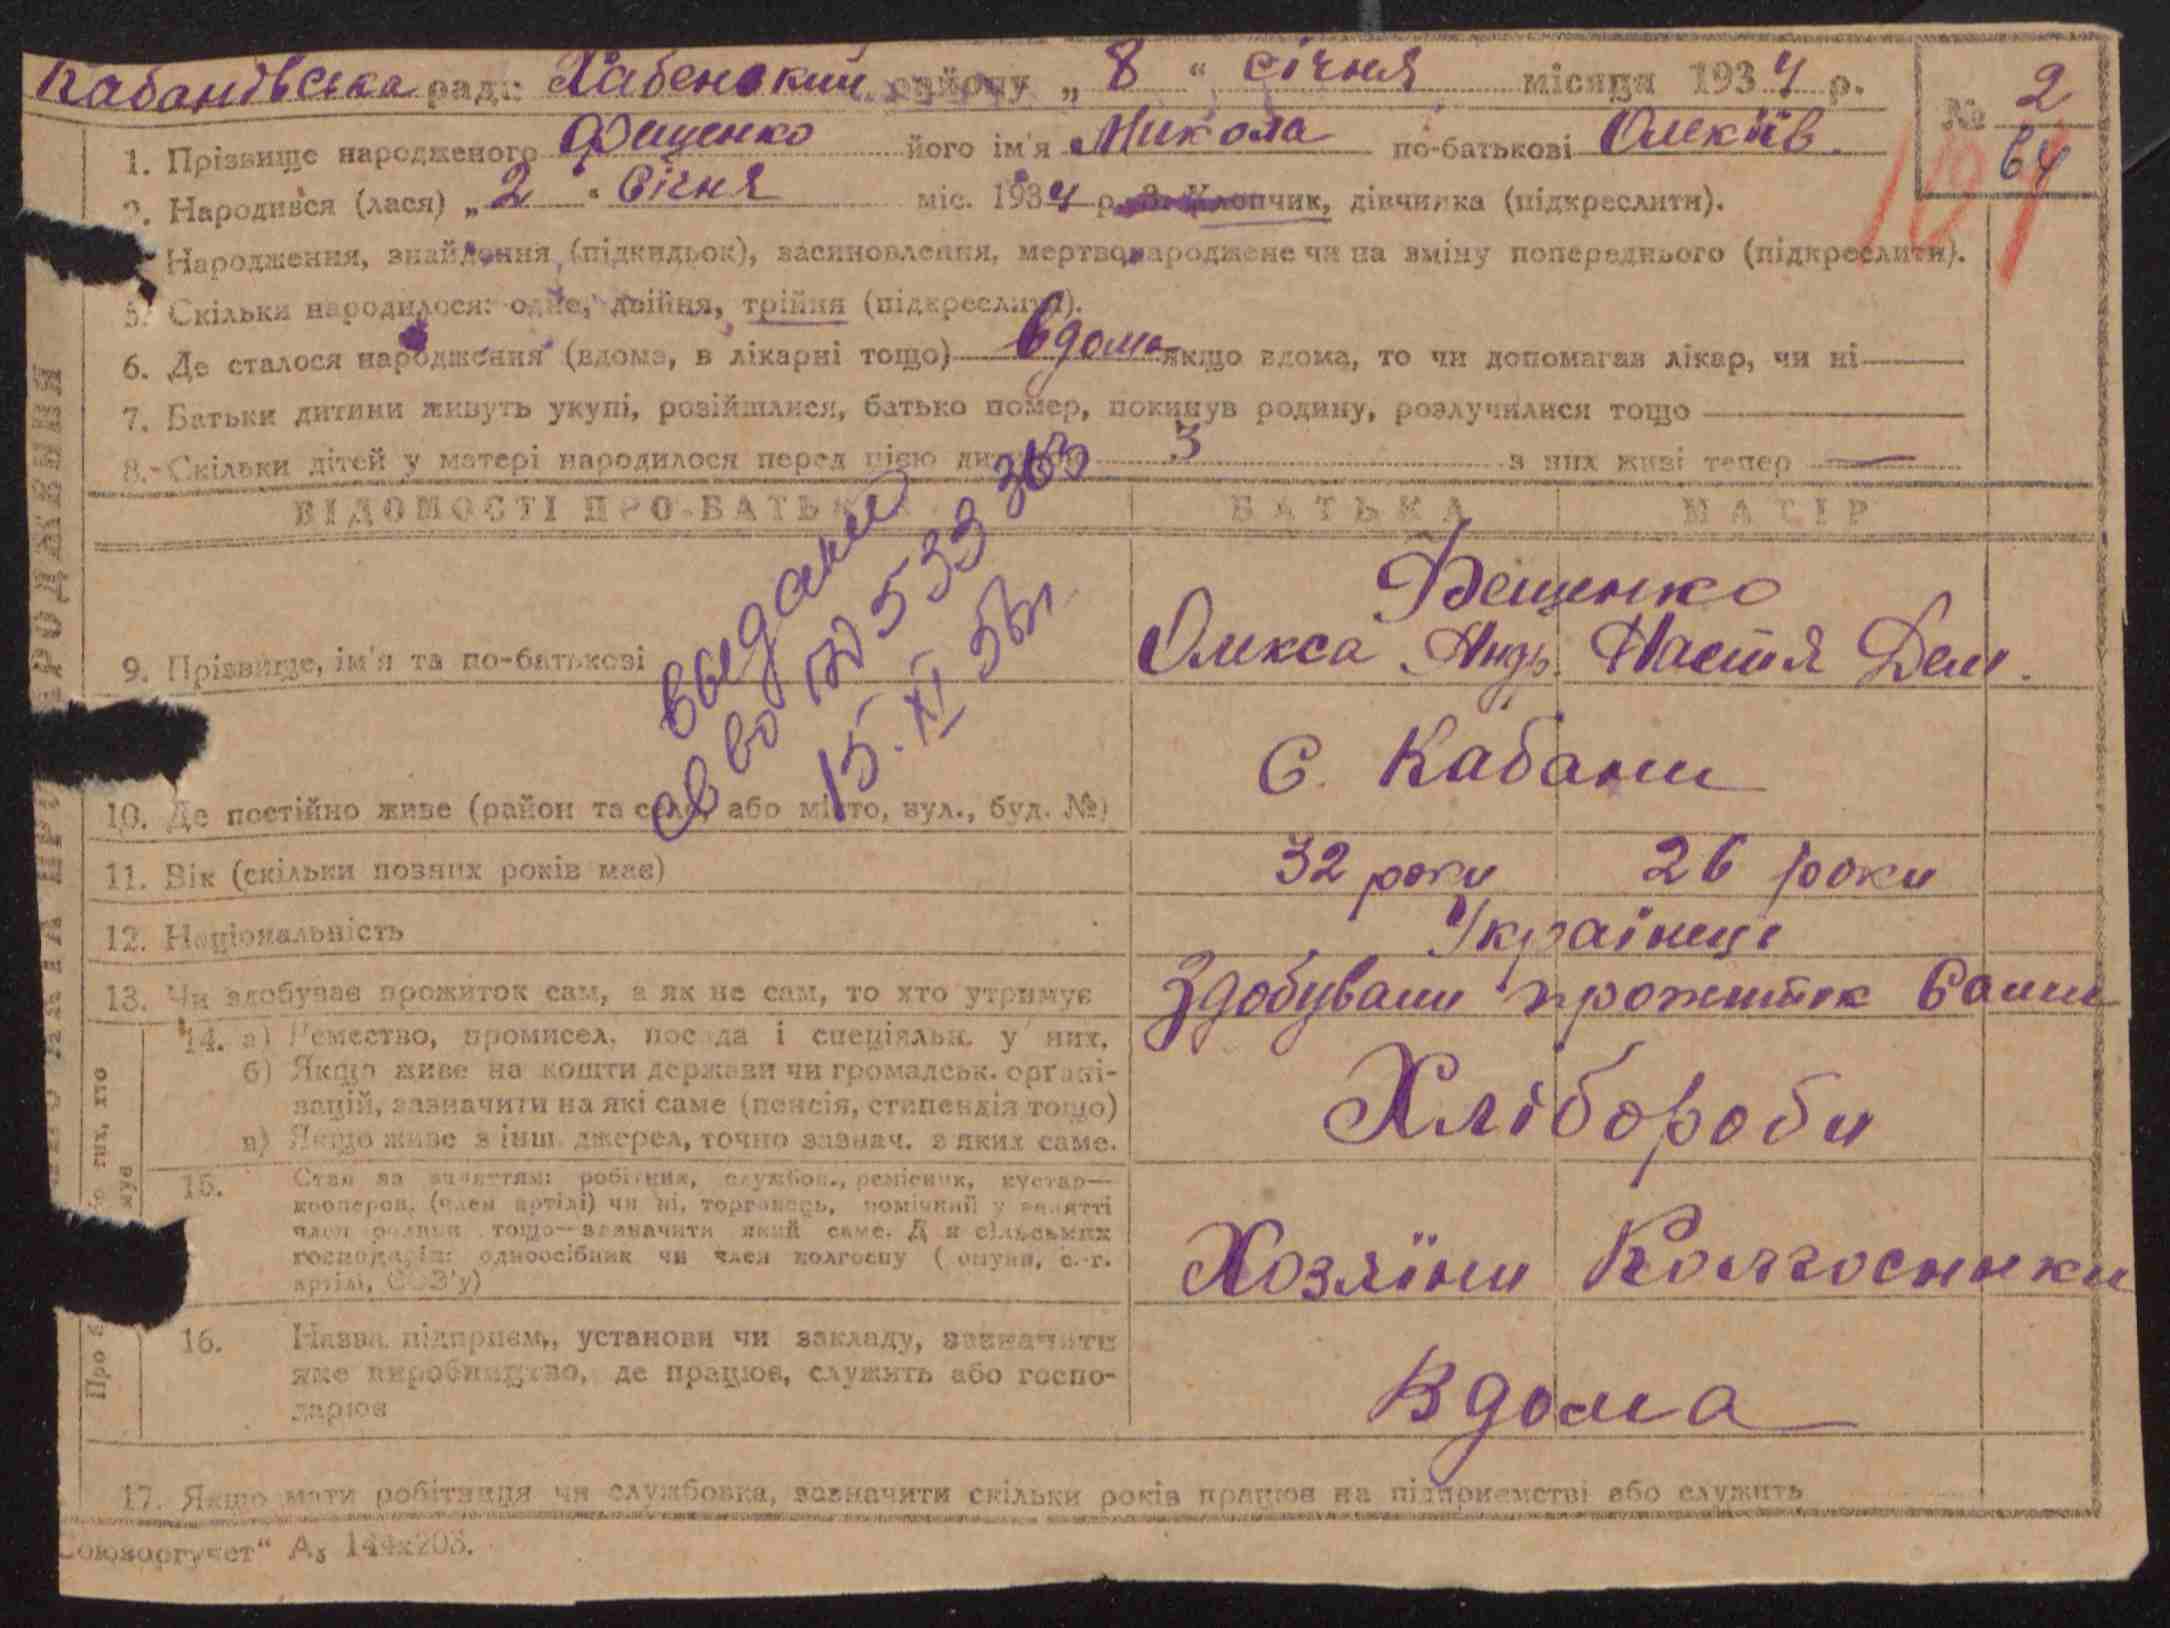 Кабанівська ради Хабенский району „ 8 “ січня місяця 1934 р.
№ 2
64
1. Прізвище народженого Фещенко його ім'я Микола по-батькові Олексіїв.
2. Народився (лася) „ 2 “ Січня міс. 1934 р. 3. Хлопчик, дівчинка (підкреслити).
Народження, знайдення (підкидьок), засиновлення, мертвонароджене чи на зміну попереднього (підкреслити).
5. Скільки народилося: одне, двійня, трійня (підкреслити).
6. Де сталося народження (вдома, в лікарні тощо) вдома якщо вдома, то чи допомагав лікар, чи ні
7. Батьки дитини живуть укупі, розійшлися, батько помер, покинув родину, розлучилися тощо
8. Скільки дітей у матері народилося перед цією 3 з них живі тепер —
ВІДОМОСТІ ПРО БАТЬКА МАТІР
Фещенко
9. Прізвище, ім'я та по-батькові Олекса Андр. Настя Дем.
533 363
15. XI 56г
10. Де постійно живе (район та село, або місто, вул., буд. №) С. Кабани
11. Вік (скільки повних років має) 32 роки 26 роки
12. Національність Українці
13. Чи здобуває прожиток сам, а як не сам, то хто утримує Здобували прожиток Сами
14. а) Ремество, промисел, посада і спеціяльн. у них.
б) Якщо живе на кошти держави чи громадськ. органі-
зацій, зазначити на які саме (пенсія, стипендія тощо)
в) Якщо живе з інш. джерел, точно зазнач. з яких саме.
Хлібороби
15. Стан за заняттям: робітник, службов., ремісник, кустар—
кооперов. (член артілі) чи ні, торговець, помічний у занятті
член родини тощо—зазначити який саме. Для сільських
господарів: одноосібник чи член колгоспу (комуни, с.-г.
артілі, СОЗ'у)
Хозяїни Колгоспники
16. Назва підприєм., установи чи закладу, зазначити
яке виробництво, де працює, служить або госпо-
дарює
Вдома
17. Якщо мати робітниця чи службовка, зазначити скільки років працює на підприємстві або служить
Союзоргучет“ А₅ 144х203.